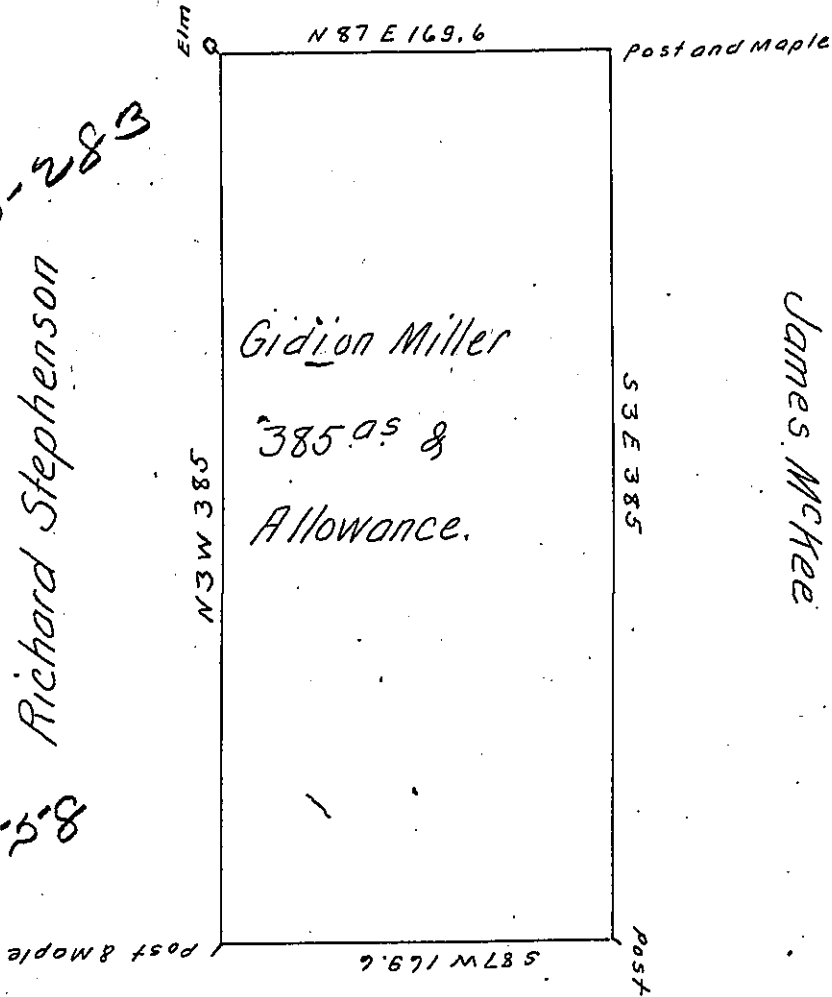 Elm
N 87 E 169.6
Post and Maple
-28B
Richard Stephenson
N 3 W 385
Gidion Miller
385 as &
Allowance.
S 3 E 385
James McKee
-58
Post & Maple
S 87 W 169.6
Post